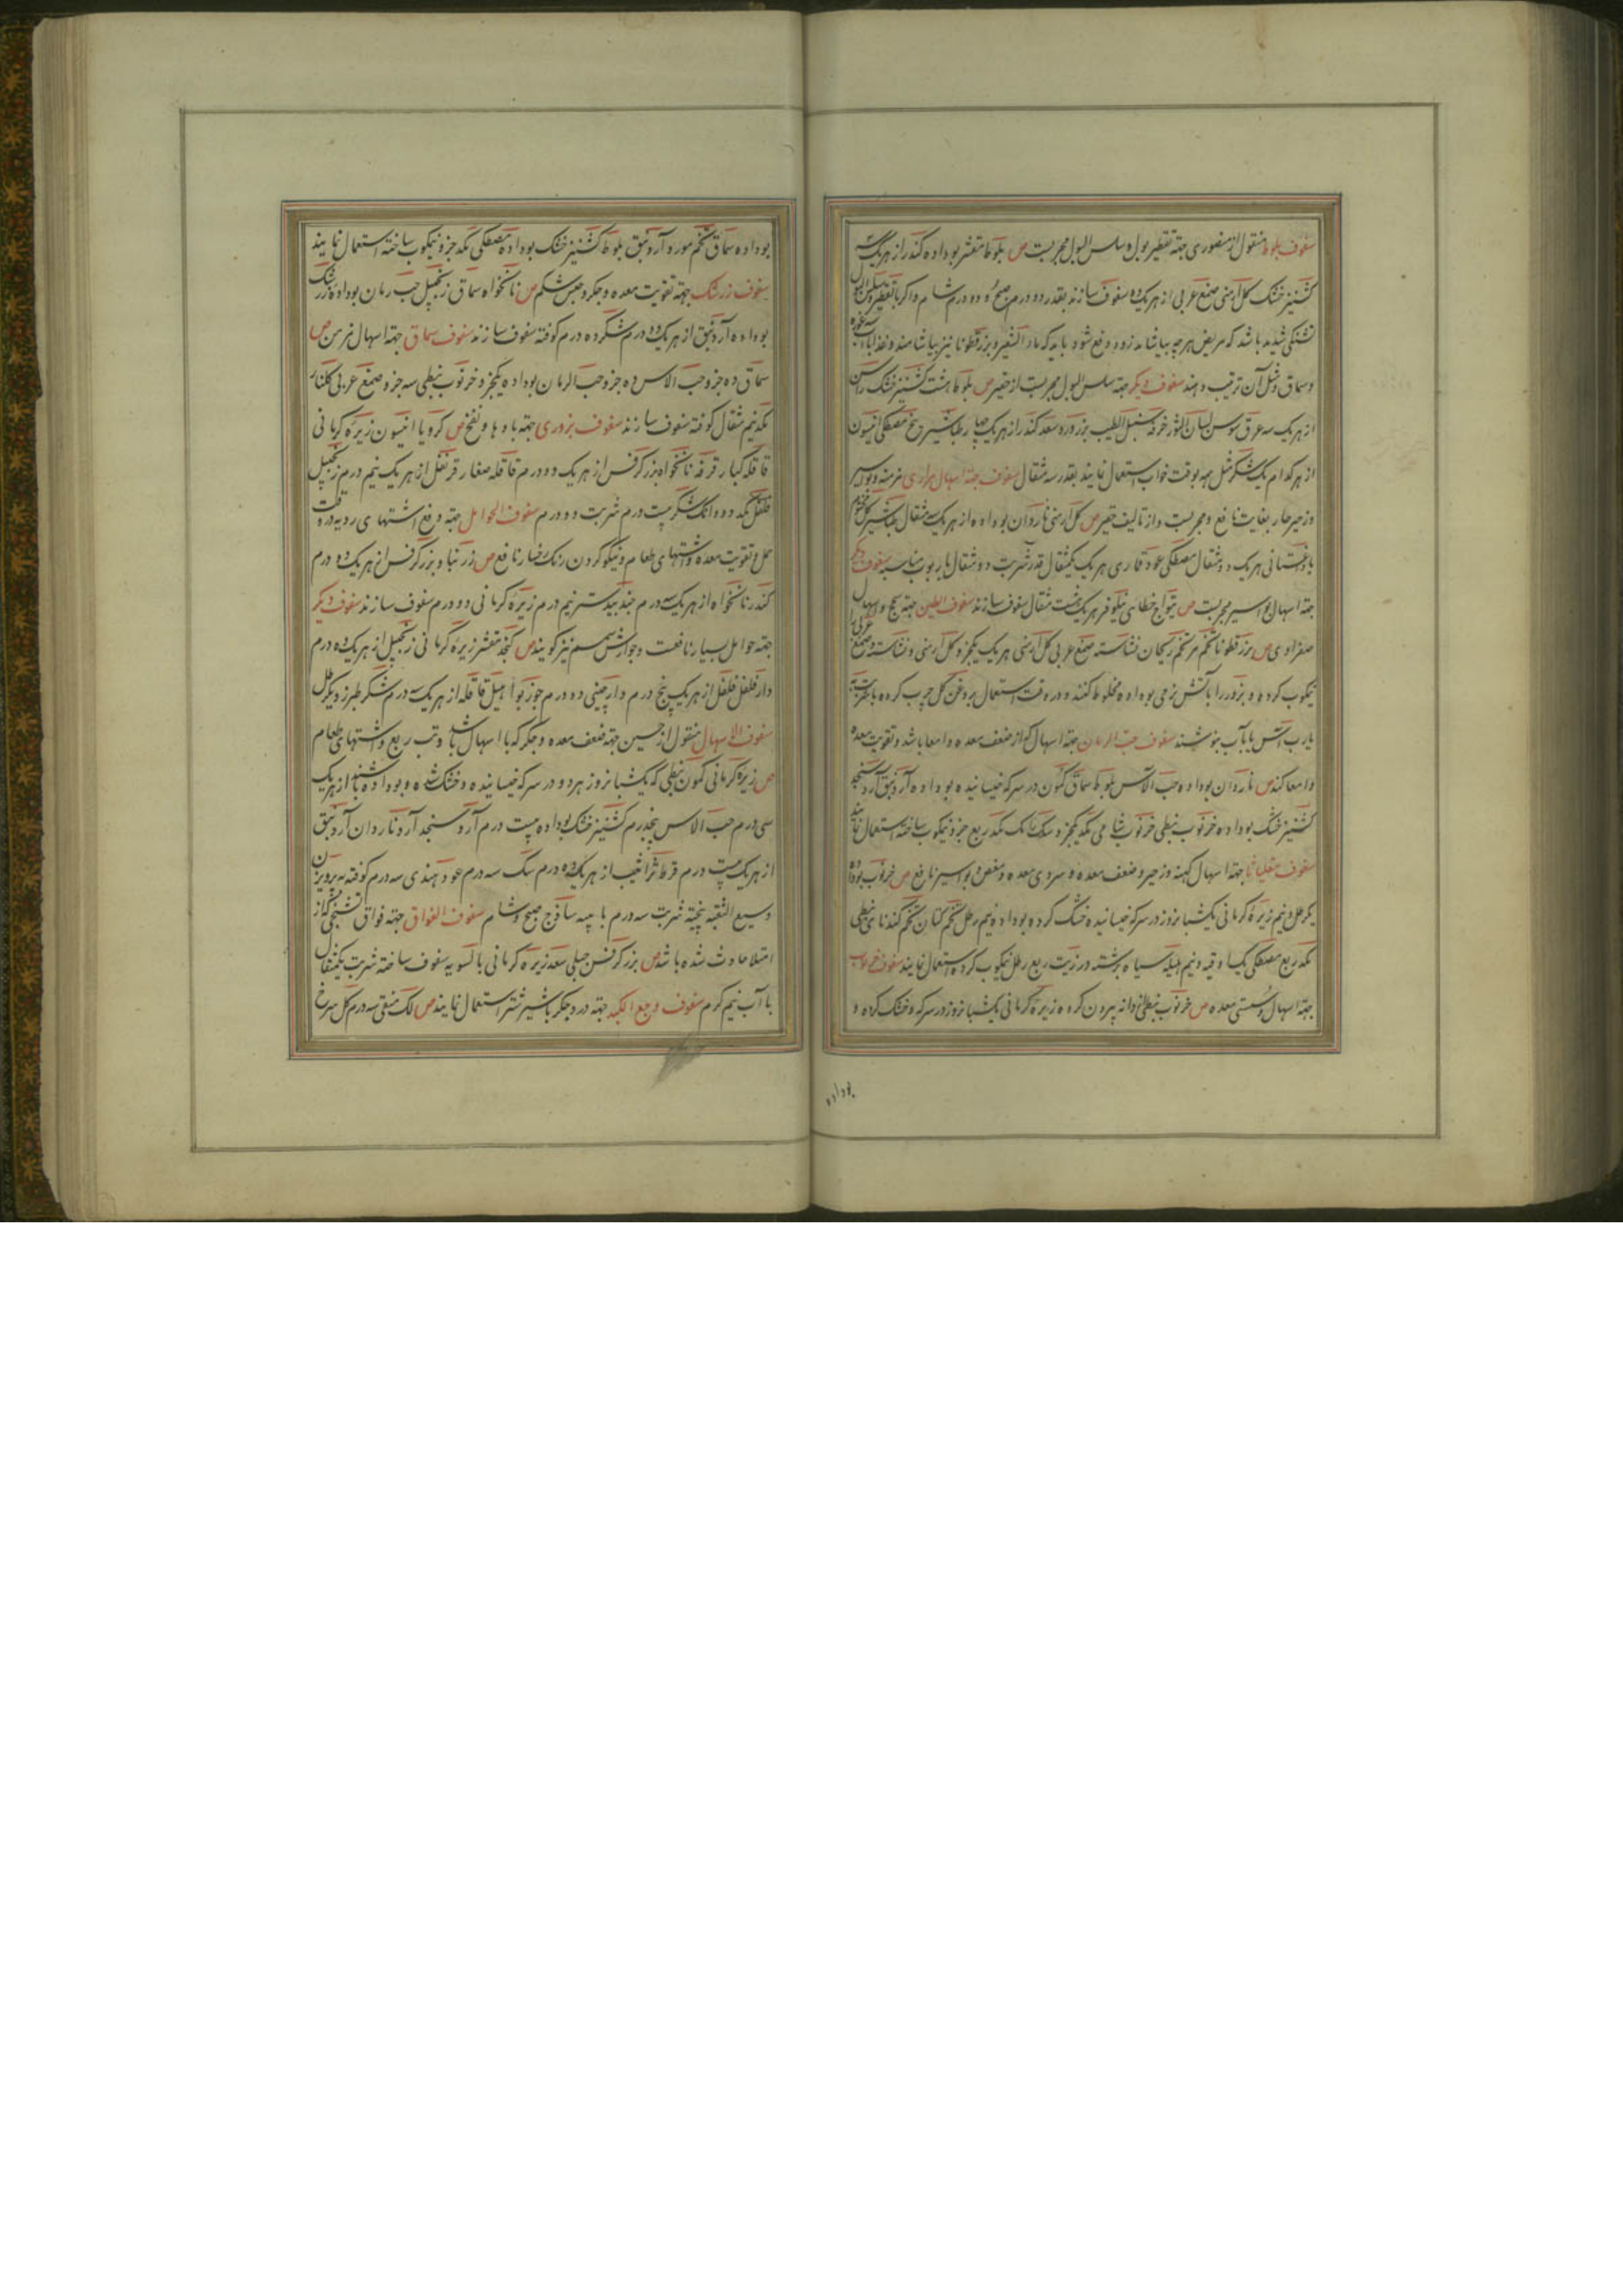 سفوف بلوط منقول از منصوری جهته تقطیر بول و سلس البول مجربست ص بلوط مقشر بوداده کندر از هریک سه
کشنیز خشک گل ارمنی صمغ عربی از هریک ده سفوف سازند بقدر دو درم صبح و دو درم شام و اگر با تقطیر و سلس البول
تشنگی شدید باشد که مریض هرچه بیاشامد زود دفع شود باید که ماء الشعیر و بزرقطونا نیز بیاشامند و غذا با آب غوره
و سماق و مثل آن ترتیب دهند سفوف دیگر جهته سلس البول مجربست از حقیر ص بلوط هشت کشنیز خشک راسن
از هریک سه عرق سوس لسان الثور خرفه سنبل الطیب بزر ورد سعد کندر از هریک چهار طباشیر مصطکی انیسون
از هرکدام یک شکر مثل همه بوقت خواب استعمال نمایند بقدر سه مثقال سفوف جهته اسهال مراری مزمنه و بواسیر
و زحیر حار بغایت نافع و مجربست و از تالیف حقیر ص گل ارمنی ناردان بوداده از هریک سه مثقال طباشیر گل مختوم
هریک دو مثقال مصطکی عود قماری هریک یکمثقال قدر شربت دو مثقال با ربوب مناسبه سفوف دیگر
جهته اسهال بواسیر مجربست ص خطای نیلوفر هریک هشت مثقال سفوف سازند سفوف الطین جهته سحج و اسهال
صفراوی ص بزرقطونا تخم مر تخم ریحان نشاسته صمغ عربی گل ارمنی هریک یکجزو گل ارمنی و نشاسته و صمغ عربی را
نیمکوب کرده و بزور را بآتش نرمی بوداده مخلوط کنند و در وقت استعمال بروغن گل چرب کرده با شربت به
یا رب آس یا بآب بنوشند سفوف حب الرمان جهته اسهال که از ضعف معده و امعا باشد و تقویت معده
و امعا کند ص ناردان بوداده حب الآس بلوط سماق کمون در سرکه خیسانیده بوداده آرد نبق آرد سنجد
کشنیز خشک بوداده خرنوب نبطی خرنوب شامی یکد یکجزو سک رامک یکد ربع جزو نیمکوب ساخته استعمال نمایند
سفوف مقلیاثا جهته اسهال کهنه و زحیر و ضعف معده و سردی معده و مغص و بواسیر نافع ص خرنوب بوداده
یکرطل و نیم زیره کرمانی یکشبانروز در سرکه خیسانیده خشک کرده بوداده نیم رطل تخم کتان تخم گندنای نبطی
یکد ربع مصطکی یک اوقیه و نیم هلیله سیاه برشته در زیت ربع رطل نیمکوب کرده استعمال نمایند سفوف خرنوب
جهته اسهال و سستی معده ص خرنوب نبطی دانه بیرون کرده زیره کرمانی یکشبانروز در سرکه و خشک کرده و
بوداده
بوداده سماق تخم مورد آرد نبق بلوط کشنیز خشک بوداده مصطکی یکد جزو نیمکوب ساخته استعمال نمایند
سفوف زرشک جهته تقویت معده و جگر و حبس شکم ص نانخواه سماق زنجبیل حب رمان بوداده زرشک
بوداده آرد نبق از هریک ده درم شکر ده درم کوفته سفوف سازند سفوف سماق جهته اسهال مزمن ص
سماق ده جزو حب الاس ده جزو حب الرمان بوداده یکجزو خرنوب نبطی سه جزو صمغ عربی گلنار
یکد نیم مثقال کوفته سفوف سازند سفوف بزوری جهته بادها و نفخ ص کرویا انیسون زیره کرمانی
قاقله کبار قرفه نانخواه بزر کرفس از هریک دو درم قاقله صغار قرنفل از هریک نیم درم زنجبیل
فلفل یکد دو دانگ شکر بیست درم شربت دو درم سفوف الحوامل جهته رفع اشتهای ردیه در وقت
حمل و تقویت معده و اشتهای طعام و نیکو کردن رنگ رخسار نافع ص زرنباد بزر کرفس از هریک ده درم
کندر نانخواه از هریک سه درم جندبیدستر نیم درم زیره کرمانی دو درم سفوف سازند سفوف دیگر
جهته حوامل بسیار نافعست و جوارش سمسم نیز گویند ص کنجد مقشر زیره کرمانی زنجبیل از هریک ده درم
دارفلفل فلفل از هریک پنج درم دارچینی ده درم جوز بوا هیل قاقله از هریک سه درم شکر طبرزد یکرطل
سفوف الاسهال منقول از حسین جهته ضعف معده و جگر که با اسهال باشد و تب ربع و اشتهای طعام
ص زیره کرمانی کمون نبطی که یکشبانروز هر دو در سرکه خیسانیده و خشک شده و بوداده باشند از هریک
سی درم حب الاس پنجدرم کشنیز خشک بوداده بیست درم آرد سنجد آرد ناردان آرد نبق
از هریک بیست درم قرط از هریک ده درم سک سه درم عود هندی سه درم کوفته به پرویزن
وسیع الثقبه بیخته شربت سه درم با ساذج صبح و شام سفوف الفواق جهته فواق تشنجی که از
امتلا حادث شده باشد ص بزر کرفس جبلی سعد زیره کرمانی بالسویه سفوف ساخته شربت یکمثقال
با آب نیم گرم سفوف وجع الکبد جهته درد جگر با شیر شتر استعمال نمایند ص لک منقی سه درم گل سرخ